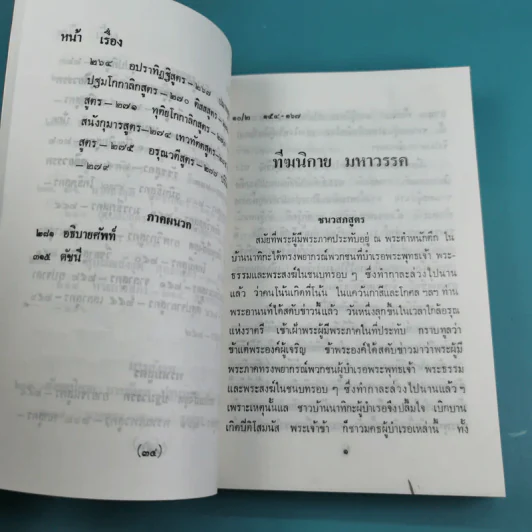 หน้า เรื่อง
๒๖๔ อปราทิฏฐิสูตร–๒๖๗
ปฐมโกกาลิกสูตร–๒๗๐ ติสสกสูตร
สูตร–๒๗๑ ทุติยโกกาลิกสูตร
สนังกุมารสูตร–๒๗๔ เทวทัตตสูตร
สูตร–๒๗๕ อรุณวตีสูตร–๒๗๗
–๒๗๙
ภาคผนวก
๒๘๑ อธิบายศัพท์
๓๑๕ ดัชนี
(๓๔)
๑๐/๒ ๑๕๔-๑๖๗
ทีฆนิกาย มหาวรรค
ชนวสภสูตร
สมัยที่พระผู้มีพระภาคประทับอยู่ ณ พระตำหนักตึก ใน
บ้านนาทิกะได้ทรงพยากรณ์พวกชนที่บำเรอพระพุทธเจ้า พระ-
ธรรมและพระสงฆ์ในชนบทรอบ ๆ ซึ่งทำกาละล่วงไปนาน
แล้ว ว่าคนโน้นเกิดที่โน้น ในแคว้นกาสีและโกศล ฯลฯ ท่าน
พระอานนท์ได้สดับข่าวนี้แล้ว วันหนึ่งลุกขึ้นในเวลาใกล้อรุณ
แห่งราตรี เข้าเฝ้าพระผู้มีพระภาคในที่ประทับ กราบทูลว่า
ข้าแต่พระองค์ผู้เจริญ ข้าพระองค์ได้สดับข่าวมาว่าพระผู้มี
พระภาคทรงพยากรณ์พวกชนผู้บำเรอพระพุทธเจ้า พระธรรม
และพระสงฆ์ในชนบทรอบ ๆ ซึ่งทำกาละล่วงไปนานแล้ว ฯ
เพราะเหตุนั้นแล ชาวบ้านนาทิกะผู้บำเรอจึงปลื้มใจ เบิกบาน
เกิดปีติโสมนัส พระเจ้าข้า ก็ชาวมคธผู้บำเรอเหล่านี้ ทั้ง
๑